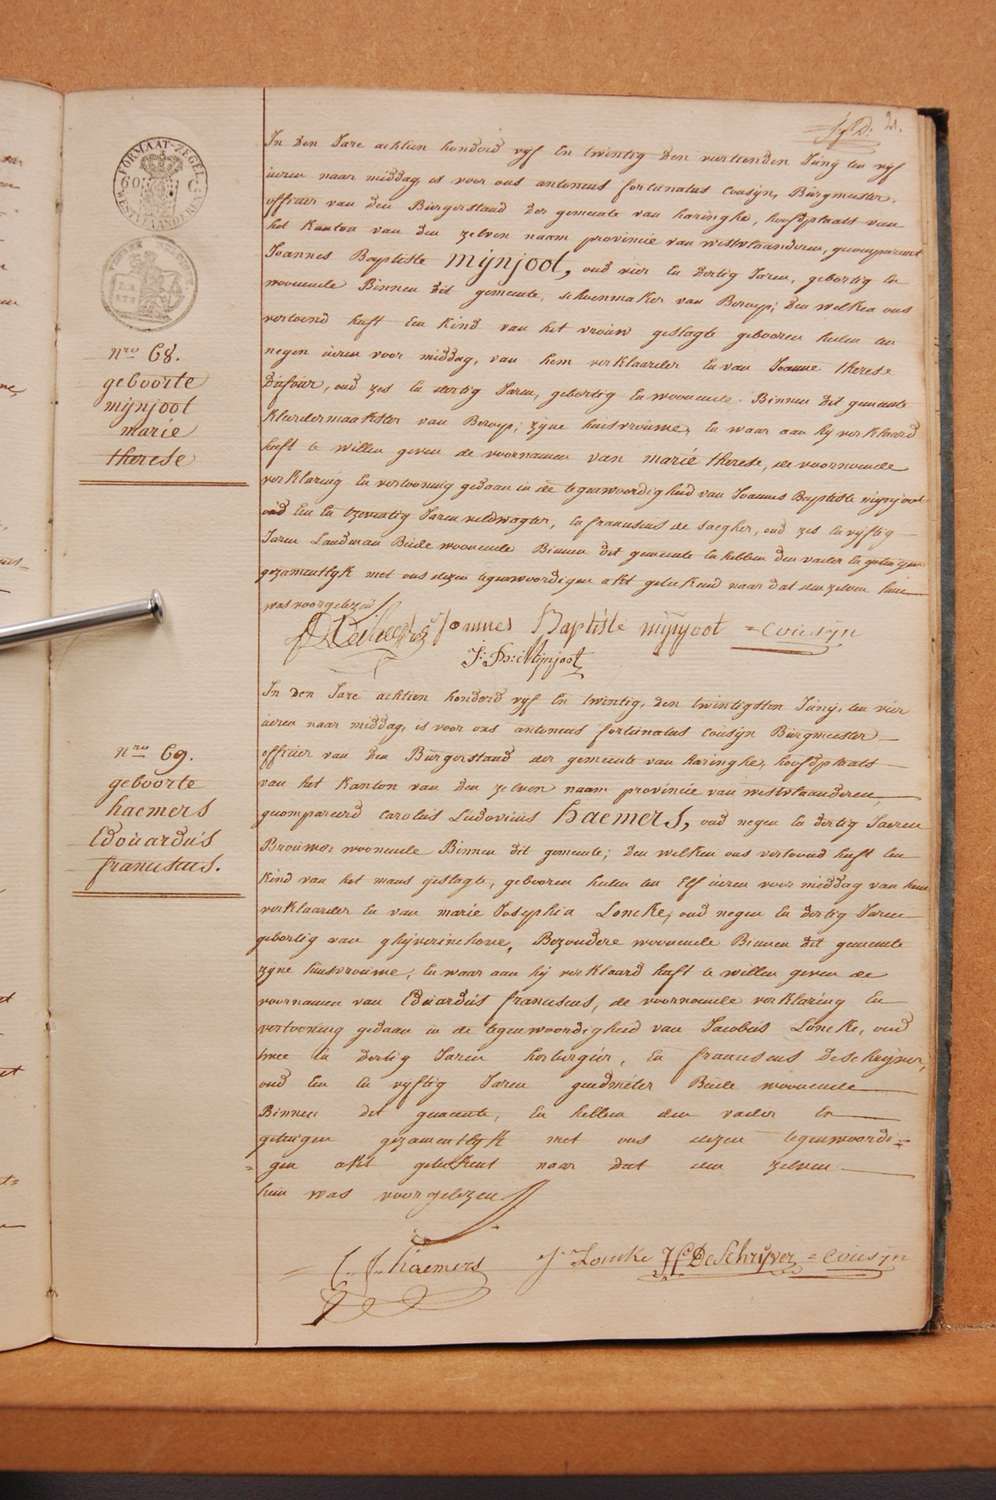 21.
FORMAAT-ZEGEL
60 C
WESTVLAANDEREN
nro 68.
geboorte
mijnjoot
marie
therese
In den Jare achtien honderd vijf En twintig den veertienden Junij ten vijf
üeren naar middag, is voor ons antonius fortunatus Cousyn, Bürgmeester,
officier van den Bürgerstand der gemeente van haringhe, hoofdplaats van
het Kanton van den zelven naam provincie van westvlaanderen, gecompareerd
Joannes Baptiste mijnjoot, oud vier En dertig Jaren, gebortig En
woonende Binnen dit gemeente, schoenmaker van Beroep; den welken ons
vertoond heeft Een kind van het vrouw geslagte gebooren heden ten
negen üeren voor middag, van hem verklaarder En van Joanne therese
Düfoür, oud zes En dertig Jaren, gebortig En woonende Binnen dit gemeente
kleedermaakster van Beroep; zijne huisvrouwe, En waar aan hij verklaard
heeft te willen geven de voornamen van marie therese, de voornoemde
verklaring En vertooning gedaan in de tegenwoordigheid van Joannes Baptiste mijnjoot
oud Een En tzeventig Jaren veldwagter, En franciscus de saegher, oud zes En vijftig
Jaren Landman Beide woonende Binnen dit gemeente En hebben den vader En getuigen
gezamentlyk met ons dezen tegenwoordigen akt geteekend naar dat den zelven hun
was voorgelezen
Joannes Baptiste mijnjoot = Cousijn
J: B: Mijnjoot
nro 69.
geboorte
haemers
Edoüardüs
franciscus.
In den Jare achtien honderd vijf En twintig, den twintigsten Junij, ten vier
üeren naar middag, is voor ons antonius fortunatus Cousijn Bürgmeester
officier van den Bürgerstand der gemeente van haringhe, hoofdplaats
van het Kanton van den zelven naam provincie van westvlaanderen,
gecompareerd Carolus Ludovicus haemers, oud negen En dertig Jaeren
Brouwer woonende Binnen dit gemeente; den welken ons vertoond heeft Een
kind van het mans geslagte, gebooren heden ten Elf üeren voor middag van hem
verklaarder En van marie Josephia Loncke, oud negen En dertig Jaren
gebortig van ghijverinchove, Bezondere woonende Binnen dit gemeente
zijne huisvrouwe, En waar aan hij verklaard heeft te willen geven de
voornamen van Edüardüs franciscus, de voornoemde verklaring En
vertooning gedaan in de tegenwoordigheid van Jacobüs Loncke, oud
twee En dertig Jaren herbergier, En franciscus Deschrijver,
oud Een En vijftig Jaren goedmeter Beide woonende
Binnen dit gemeente, En hebben den vader En
getuigen gezamentlyk met ons dezen tegenwoordi=
= gen akt geteekent naar dat den zelven
hun was voorgelezen
C. L. haemers J. Loncke F. DeSchrijver = Cousijn